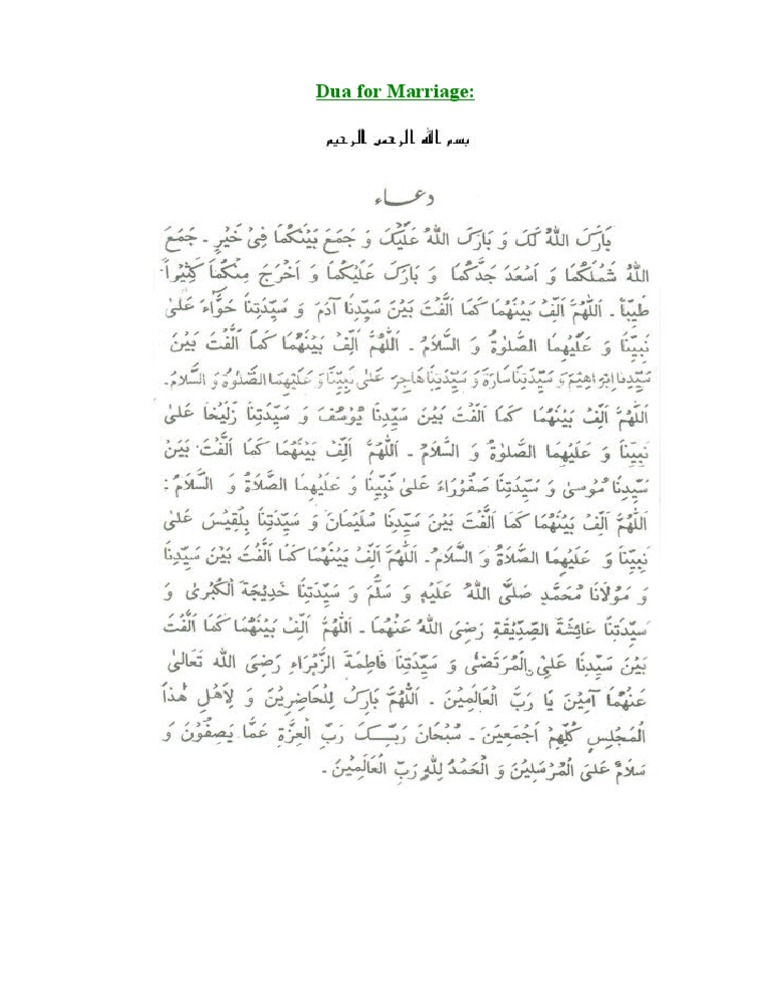 Dua for Marriage:
بسم الله الرحمن الرحيم
دعاء
بَارَکَ اللهُ لَکَ وَ بَارَکَ اللهُ عَلَیْکَ وَ جَمَعَ بَیْنَکُمَا فِیْ خَیْرٍ ۔ جَمَعَ
اللهُ شَمْلَکُمَا وَ اَسْعَدَ جَدَّکُمَا وَ بَارَکَ عَلَیْکُمَا وَ اَخْرَجَ مِنْکُمَا کَثِیْراً
طَیِّباً ۔ اَللّٰهُمَّ اَلِّفْ بَیْنَهُمَا کَمَا اَلَّفْتَ بَیْنَ سَیِّدِنَا آدَمَ وَ سَیِّدَتِنَا حَوَّاءَ عَلیٰ
نَبِیِّنَا وَ عَلَیْهِمَا الصَّلٰوةُ وَ السَّلَامُ ۔ اَللّٰهُمَّ اَلِّفْ بَیْنَهُمَا کَمَا اَلَّفْتَ بَیْنَ
سَیِّدِنَا اِبْرَاهِیْمَ وَ سَیِّدَتِنَا سَارَةَ وَ سَیِّدَتِنَا هَاجِرَ عَلیٰ نَبِیِّنَا وَ عَلَیْهِمَا الصَّلٰوةُ وَ السَّلَامُ۔
اَللّٰهُمَّ اَلِّفْ بَیْنَهُمَا کَمَا اَلَّفْتَ بَیْنَ سَیِّدِنَا یُوْسُفَ وَ سَیِّدَتِنَا زَلِیْخَا عَلیٰ
نَبِیِّنَا وَ عَلَیْهِمَا الصَّلٰوةُ وَ السَّلَامُ ۔ اَللّٰهُمَّ اَلِّفْ بَیْنَهُمَا کَمَا اَلَّفْتَ بَیْنَ
سَیِّدِنَا مُوْسیٰ وَ سَیِّدَتِنَا صَفُوْرَاءَ عَلیٰ نَبِیِّنَا وَ عَلَیْهِمَا الصَّلَاةُ وَ السَّلَامُ :
اَللّٰهُمَّ اَلِّفْ بَیْنَهُمَا کَمَا اَلَّفْتَ بَیْنَ سَیِّدِنَا سُلَیْمَانَ وَ سَیِّدَتِنَا بِلْقِیْسَ عَلیٰ
نَبِیِّنَا وَ عَلَیْهِمَا الصَّلَاةُ وَ السَّلَامُ۔ اَللّٰهُمَّ اَلِّفْ بَیْنَهُمَا کَمَا اَلَّفْتَ بَیْنَ سَیِّدِنَا
وَ مَوْلَانَا مُحَمَّدٍ صَلَّی اللهُ عَلَیْهِ وَ سَلَّمَ وَ سَیِّدَتِنَا خَدِیْجَةَ الْکُبْریٰ وَ
سَیِّدَتِنَا عَائِشَةَ الصِّدِّیْقَةِ رَضِیَ اللهُ عَنْهُمَا ۔ اَللّٰهُمَّ اَلِّفْ بَیْنَهُمَا کَمَا اَلَّفْتَ
بَیْنَ سَیِّدِنَا عَلِیِّ الْمُرْتَضیٰ وَ سَیِّدَتِنَا فَاطِمَةَ الزَّهْرَاءِ رَضِیَ الله تَعَالیٰ
عَنْهُمَا آمِیْنَ یَا رَبَّ الْعَالَمِیْنَ ۔ اَللّٰهُمَّ بَارِکْ لِلْحَاضِرِیْنَ وَ لِاَهْلِ هٰذَا
الْمَجْلِسِ کُلِّهِمْ اَجْمَعِیْنَ ۔ سُبْحَانَ رَبِّکَ رَبِّ الْعِزَّةِ عَمَّا یَصِفُوْنَ وَ
سَلَامٌ عَلَی الْمُرْسَلِیْنَ وَ الْحَمْدُ لِلّٰهِ رَبِّ الْعَالَمِیْنَ ۔